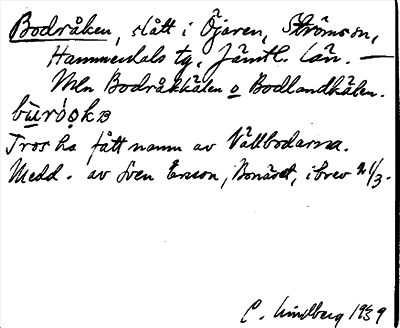 Bodråken, slått i Öjaren, Strömsn,
Hammerdals tg, Jämtl. län. —
Mln Bodråkkälen o Bodlandkälen.
Tros ha fått namn av Vallbodarna.
Medd. av Sven Ersson, Bonäset, i brev 21/3.
C. Lindberg 1939